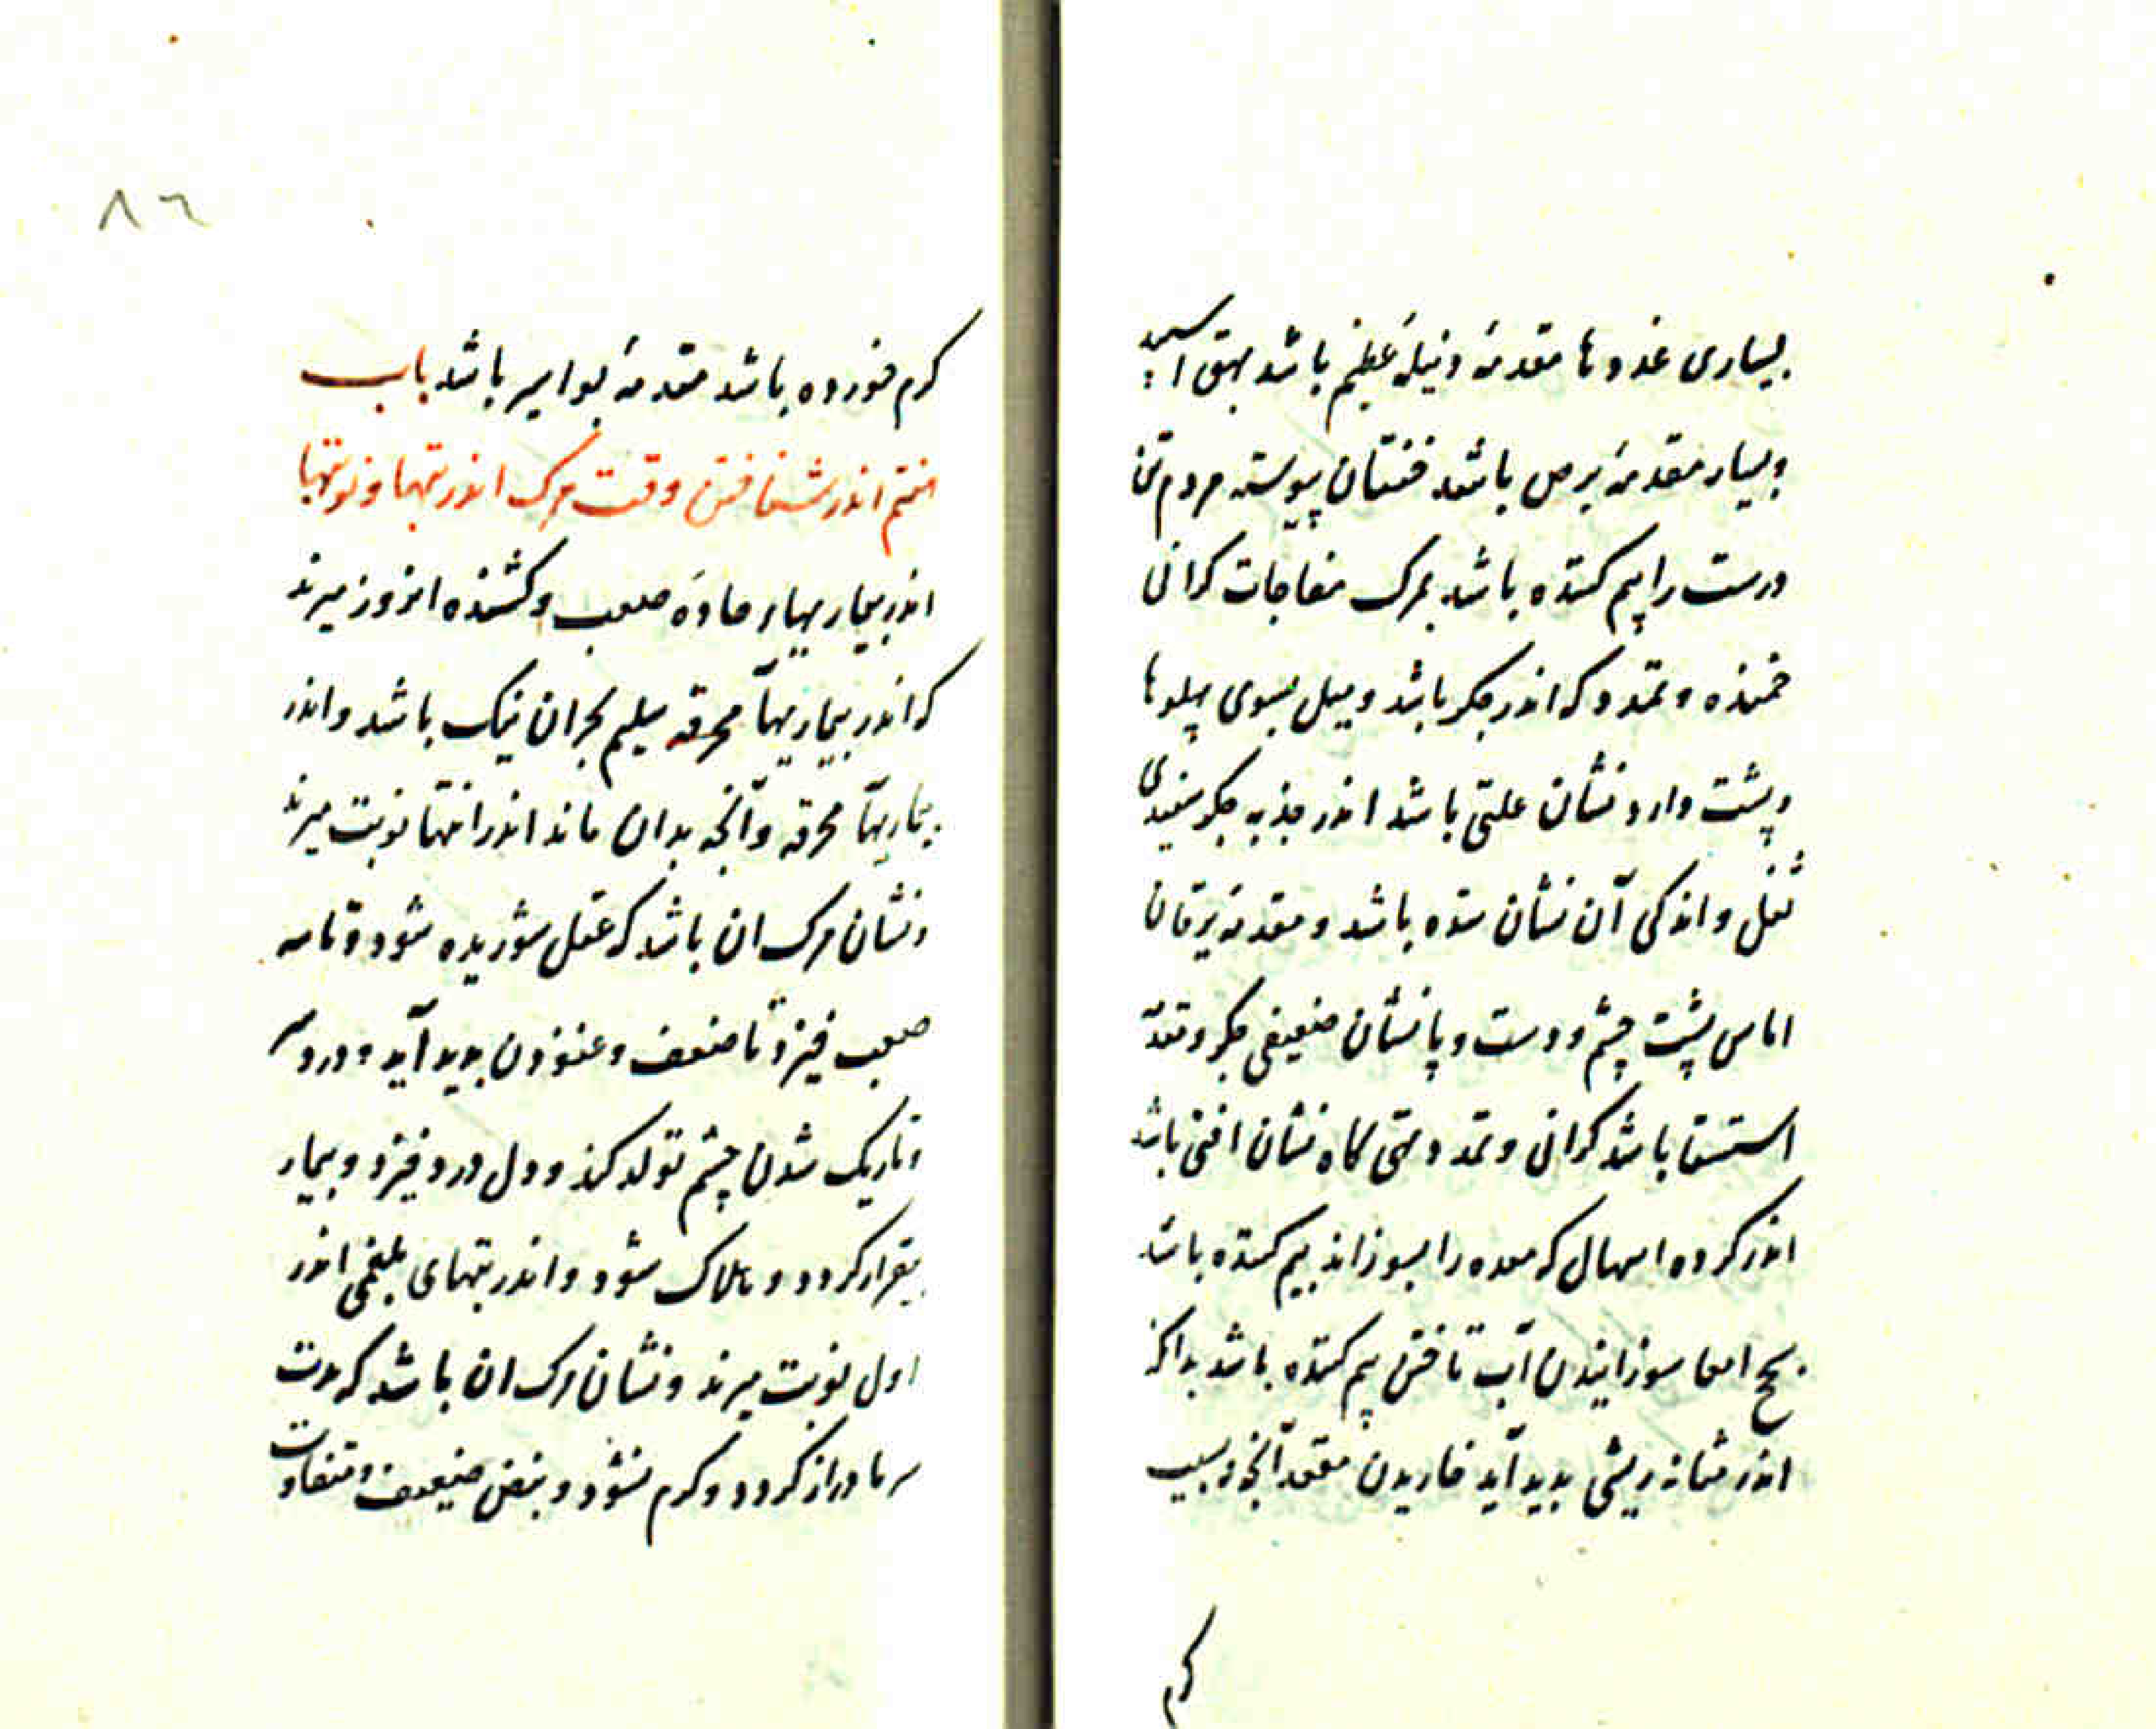 بسیاری غدودها مقدمهٔ دنیلهٔ عظیم باشد بهق اسپید
وبسیار مقدمهٔ برص باشد خفقان پیوسته مردم تن
درست را بیم کننده باشد بمرک مفاجات کرانی
خمنده وتمدد که اندر جکر باشد ومیل بسوی پهلوها
وپشت دارد نشان علتی باشد اندر جذبه جکر سفیدی
ثفل واندکی آن نشان سده باشد ومقدمهٔ یرقان
اماس پشت چشم ودست وپا نشان ضعیفی جکر ومقدمه
استسقا باشد کرانی وتمدد تهی کاه نشان افتی باشد
اندر کرده اسهال که معده را بسوزاند بیم کننده باشد
بسحج امعا سوزانیدن آب تاختن بیم کننده باشد بدانکه
اندر مثانه ریشی بدید آید خاریدن مقعد آنچه بسبب
کرم
۸۲
کرم خورده باشد مقدمهٔ بواسیر باشد باب
هفتم اندر شناختن وقت مرک اندر تبها ونوبتها
اندر بیماریهاء حادهٔ صعب وکشنده انروز میرند
که اندر بیماریهآ محرقه سلیم بحران نیک باشد واندر
بیماریهآ محرقه وآنچه بدان ماند اندر انتها نوبت میرند
ونشان مرک ان باشد که عقل شوریده شود وتاسه
صعب خیزد تا ضعف وغنودن بدید آید ودرد سر
وتاریک شدن چشم تولد کند ودل درد خیزد وبیمار
بیقرار کردد وهلاک شود واندر تبهای بلغمی اندر
اول نوبت میرند ونشان مرک ان باشد که مدت
سرما دراز کردد وکرم نشود ونبض ضعیف ومتفاوت